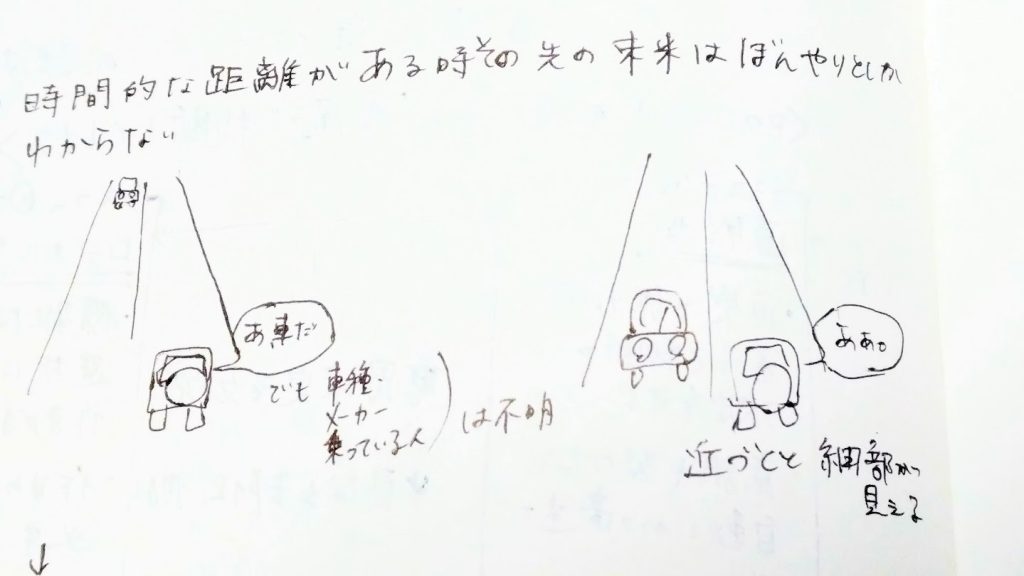 時間的な距離がある時その先の未来はぼんやりとしか
わからない
あ、車だ
でも 車種・
メーカー
乗っている人
は不明
ああ。
近づくと 細部が
見える
↓